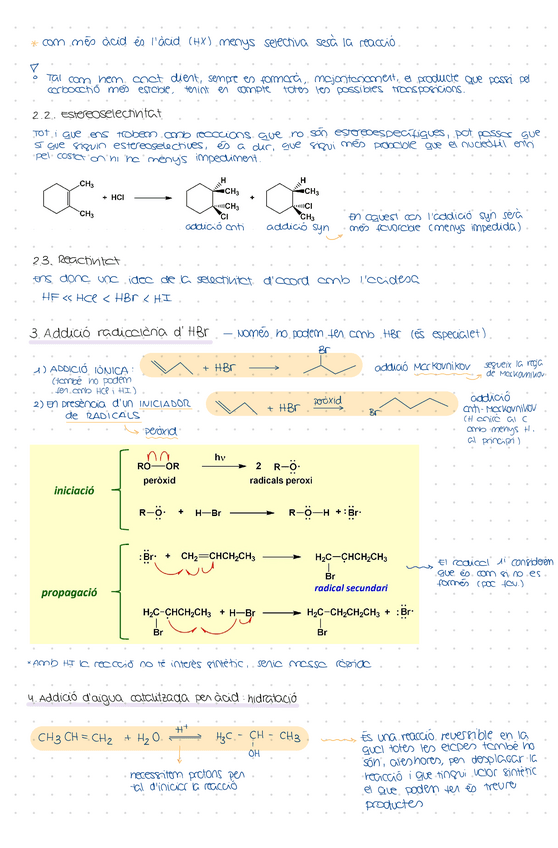 * com més àcid és l'àcid (HX) menys selectiva serà la reacció.
Tal com hem anat dient, sempre es formarà, majoritàriament, el producte que passi pel
carbocatió més estable, tenint en compte totes les possibles transposicions.
2.2. estereoselectivitat
Tot i que ens trobem amb reaccions que no són estereoespecífiques, pot passar que
sí que siguin estereoselectives, és a dir, que sigui més probable que el nucleòfil entri
pel costat on hi ha menys impediment.
CH₃
CH₃
+ HCl
H
CH₃
CH₃
Cl
+
H
CH₃
Cl
CH₃
addició anti
addició syn
En aquest cas l'addició syn serà
més favorable (menys impedida).
2.3. Reactivitat
ens dona una idea de la selectivitat d'acord amb l'acidesa
HF << HCl < HBr < HI
3. Addició radicalària d'HBr
— Només ho podem fer amb HBr (és especialet)
1) ADDICIÓ IÒNICA:
(també ho podem
fer amb HCl i HI)
+ HBr
Br
addició Markovnikov
segueix la regla
de Markovnikov
2) En presència d'un INICIADOR
de RADICALS
peròxid
+ HBr
peròxid
Br
addició
anti-Markovnikov
(H units al C
amb menys H
al principi)
iniciació
RO—OR
peròxid
hν
2 R—Ö·
radicals peroxi
R—Ö· + H—Br
R—Ö—H + :Br·
propagació
:Br· + CH₂=CHCH₂CH₃
H₂C—ĊHCH₂CH₃
Br
radical secundari
H₂C—ĊHCH₂CH₃ + H—Br
Br
H₂C—CH₂CH₂CH₃ + :Br·
Br
El radical 1r considerem
que és com si no es
formés (poc fav.)
* Amb HI la reacció no té interès sintètic, seria massa ràpida
4. Addició d'aigua catalitzada per àcid: hidratació
CH₃CH=CH₂ + H₂O
H⁺
H₃C - CH - CH₃
OH
necessitem protons per
tal d'iniciar la reacció
És una reacció reversible en la
qual totes les etapes també ho
són, aleshores, per desplaçar la
reacció i que tingui valor sintètic
el que podem fer és treure
productes